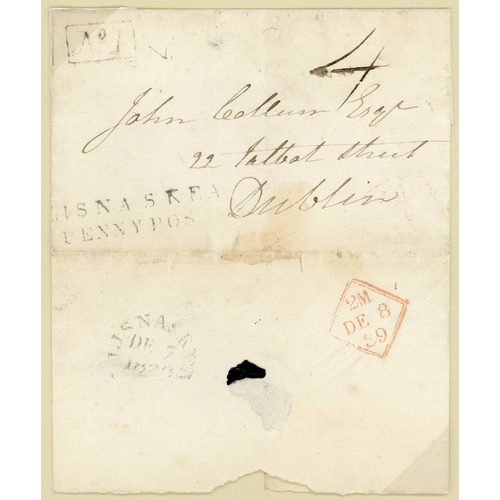 No 1
4
John Collum Esqr
22 Talbot Street
Dublin
LISNASKEA
PENNY POS
2M
DE 8
39
LISNASKEA
DE 7
1839